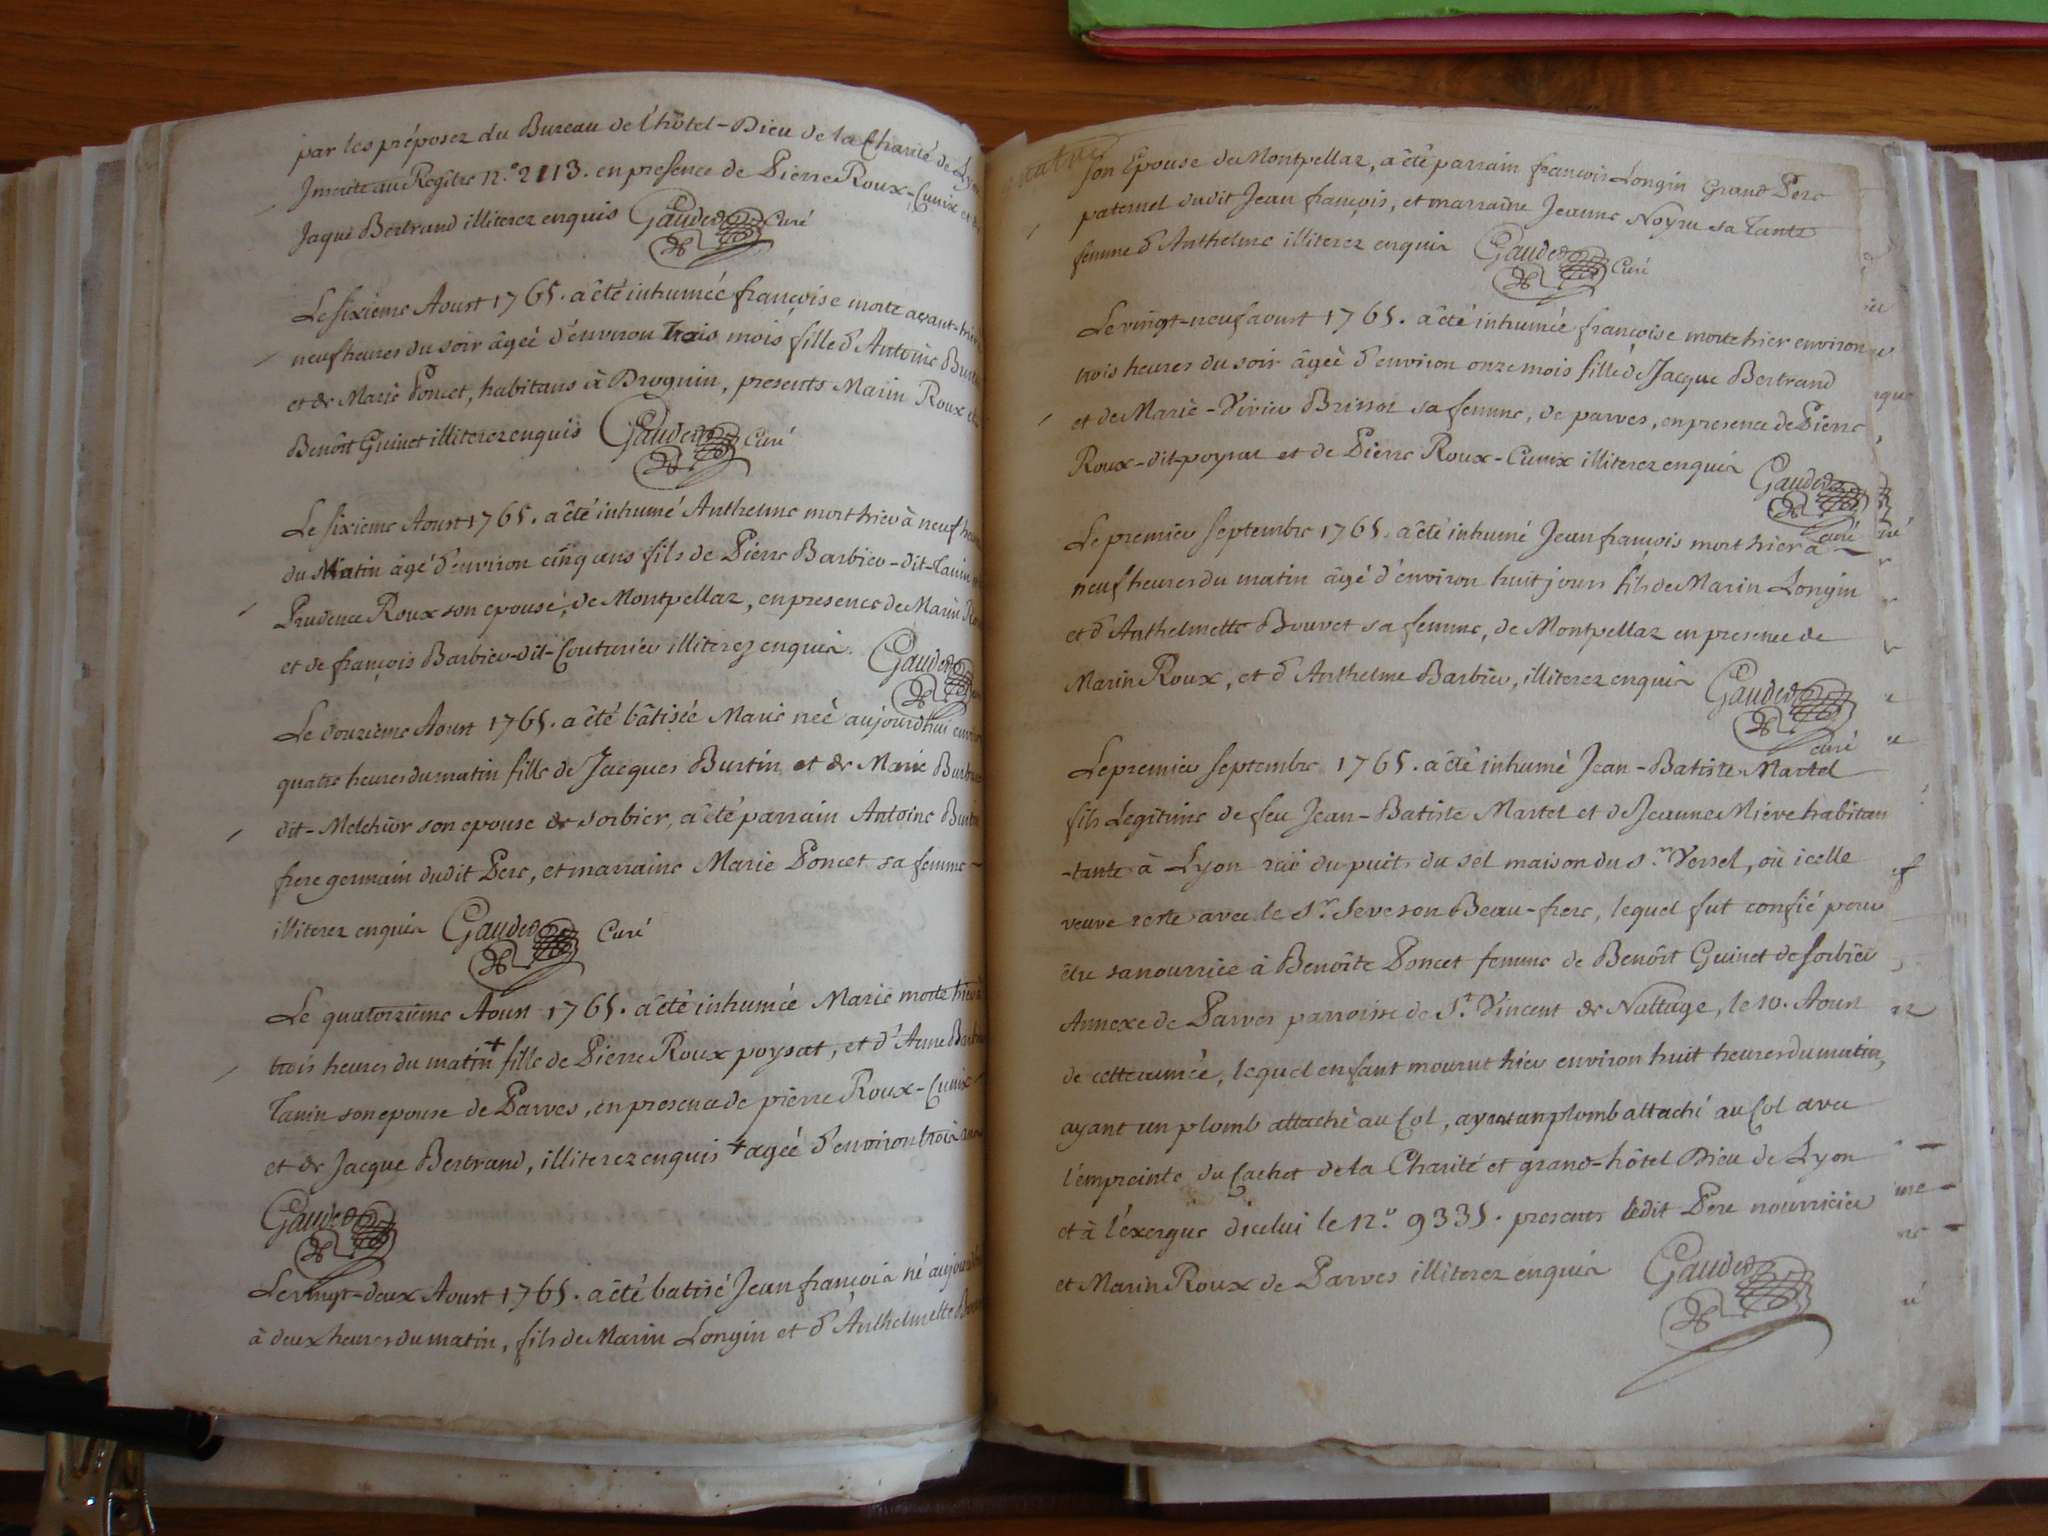 par les préposez du Bureau de l'hôtel-Dieu de la Charité de
Inscrite au Regître N.º 2113. en presence de Pierre Roux-Cunix et
Jaque Bertrand illiterez enquis Gauded Curé
Le sixieme Aoust 1765. a êté inhumée françoise morte avant-hier
neuf heures du soir âgée d'environ Trois mois fille d'Antoine
et de Marie Poncet, habitans à Brognin, presents Marin Roux et
Benôit Guinet illiterez enquis Gauded Curé
Le sixieme Aoust 1765. a êté inhumé Anthelme mort hier à neuf
du Matin âgé d'environ cinq ans fils de Pierre Barbier-dit-Tanin
Prudence Roux son epouse, de Montpellaz, en presence de Marin
et de françois Barbier-dit-Couturier illiterez enquis. Gauded
Le douzieme Aoust 1765. a êté bâtisée Marie neé aujourdhui
quatre heures du matin fille de Jacques Burtin et de Marie
dit-Melchior son epouse de sorbier, a êté parrain Antoine
frere germain dudit Pere, et marraine Marie Poncet sa femme
illiterez enquis Gauded Curé
Le quatorzieme Aoust 1765. a êté inhumée Marie morte
trois heures du matin + fille de Pierre Roux poysat, et d'Anne
Tanin son epouse de Parves, en presence de pierre Roux-Cunix
et de Jacque Bertrand, illiterez enquis + ageé d'environ trois
Gauded
Le vingt-deux Aoust 1765. a êté batisé Jean françois né
à deux heures du matin, fils de Marin Longin et d'Anthelmette
son Epouse de Montpellaz, a êté parrain francois Longin Grand Pere
paternel dudit Jean françois, et marraine Jeanne Noyru sa Tante
femme d'Anthelme illiterez enquis Gauded Curé
Le vingt-neuf aoust 1765. a êté inhumée françoise morte hier environ
trois heures du soir âgeè d'environ onze mois fille de Jacque Bertrand
et de Marie-Vivier Brissot sa femme, de parves, en presence de Pierre
Roux-dit-poysat et de Pierre Roux-Cunix illiterez enquis Gauded
Curé
Le premier septembre 1765. a êté inhumé Jean françois mort hier à
neuf heures du matin âgé d'environ huit jours fils de Marin Longin
et d'Anthelmette Bouvet sa femme, de Montpellaz en presence de
Marin Roux, et d'Anthelme Barbier, illiterez enquis Gauded
Curé
Le premier septembre 1765. a êté inhumé Jean-Batiste Martel
fils Legitime de feu Jean-Batiste Martel et de Jeanne Mieve habitan
-tante à Lyon rüe du puit du sel maison du S.r Verset, où icelle
veuve reste avec le S.r Seve son Beau-frere, lequel fut confié pour
être sa nourrice à Benôite Poncet femme de Benôit Guinet de sorbier
Annexe de Parves parroisse de S.t Vincent de Nattage, le 10. Aoust
de cette année, lequel enfant mourut hier environ huit heures du matin,
ayant un plomb attaché au Col, ayant un plomb attaché au Col avec
l'empreinte du Cachet de la Charité et grand-hôtel Dieu de Lyon
et à l'exergue d'icelui le N.º 9335. presents ledit Pere nourricier
et Marin Roux de Parves illiterez enquis Gauded